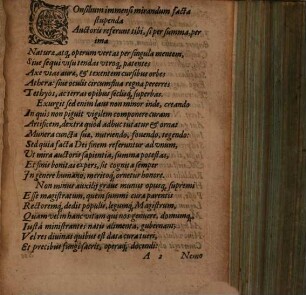 COnsilium immensi mirandum facta
stupenda
Auctoris referunt tibi, si per summa, per
ima
Naturæ, atq, operum vertas per singula mentem,
Siue sequi visu tendas vtroq, patentes
Axe vias auræ, & texentem cursibus orbes
Æthera: siue oculis circumflua regna pererres
Tethyos, ac terras opibus fœlicq, superbas.
Exurgit sed enim laus non minor inde, creando
In quis non piguit vigilem componere curam
Artificem, dextra quod adhuc tutatur & ornat
Munera cuncta sua, nutriendo, fouendo, tegendo:
Sed quia facta Dei finem referuntur ad vnum,
Vt mira auctoris sapientia, summa potestas,
Et fons bonitas expers, sic cognita semper
In genere humano, meritoq, ornetur honore.
Non minus auxilij graue munus opusq, supremi
Esse magistratum, quem summi cura parentis
Rectorems, dedit populis, legumq, Magistrum,
Quam vel hanc vitam qui nos genuere, domiumq,
Iusta ministrantes natis alimenta, gubernant:
Vel res diuinas quibus est data cura tueri,
Et precibus fungi sacris, operaq, docendi:
A 2 Nemo